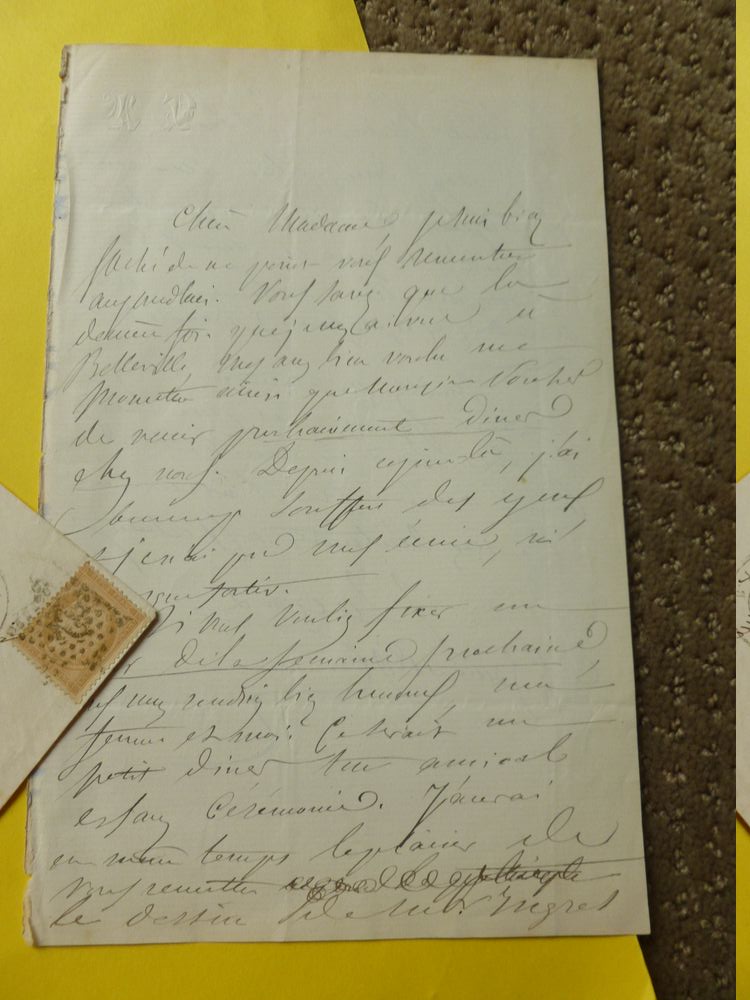 Chère Madame, je suis bien
fâché de ne pas vous rencontrer
aujourdhui. Vous savez que la
dernière fois que je vous ai vue à
Belleville, vous avez bien voulu me
promettre ainsi que Monsieur
de venir prochainement diner
chez nous. Depuis ce jour là, j'ai
beaucoup souffert des yeux
et je n'ai pu ni vous écrire, ni
sortir.
Si vous vouliez fixer un
de la semaine prochaine
vous nous rendriez bien heureux, ma
femme et moi. Ce serait un
petit diner tout amical
et sans cérémonie. J'aurai
en même temps le plaisir de
vous remettre
le dessin de Mr. Ingres